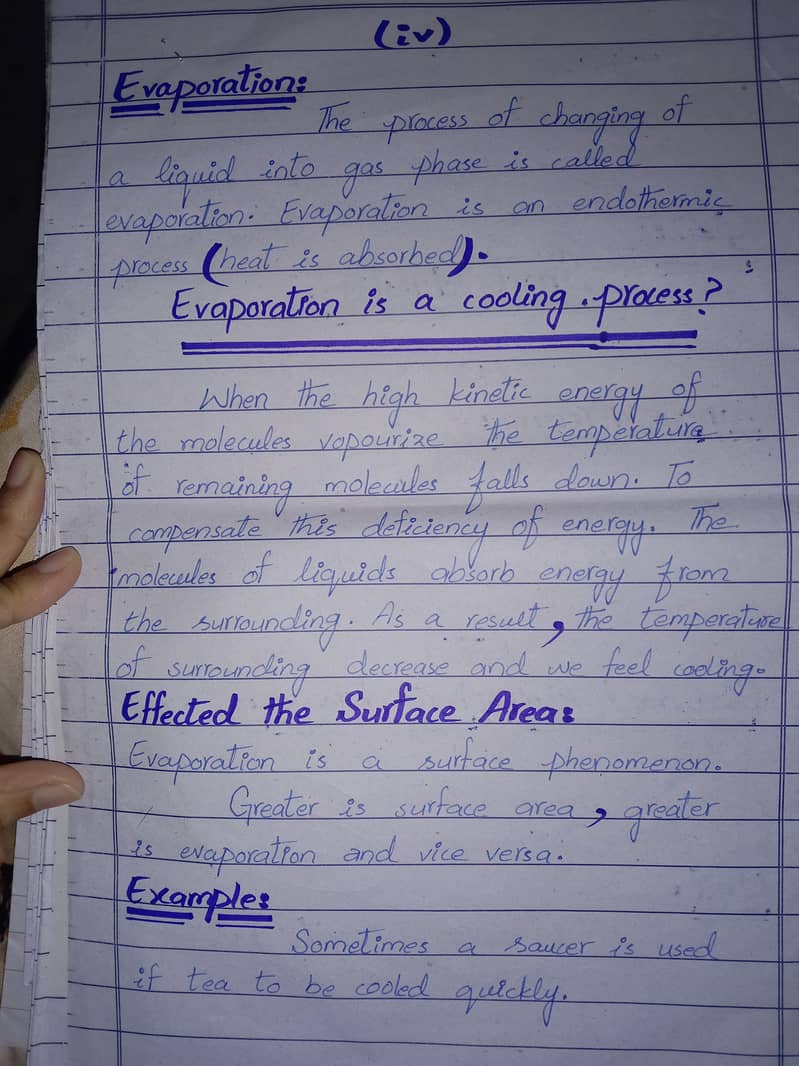 (iv)
Evaporation:
The process of changing of
a liquid into gas phase is called
evaporation. Evaporation is an endothermic
process (heat is absorbed).
Evaporation is a cooling process?
When the high kinetic energy of
the molecules vopourize the temperature
of remaining molecules falls down. To
compensate this deficiency of energy. The
molecules of liquids absorb energy from
the surrounding. As a result, the temperature
of surrounding decrease and we feel cooling.
Effected the Surface Area:
Evaporation is a surface phenomenon.
Greater is surface area, greater
is evaporation and vice versa.
Example:
Sometimes a saucer is used
if tea to be cooled quickly.